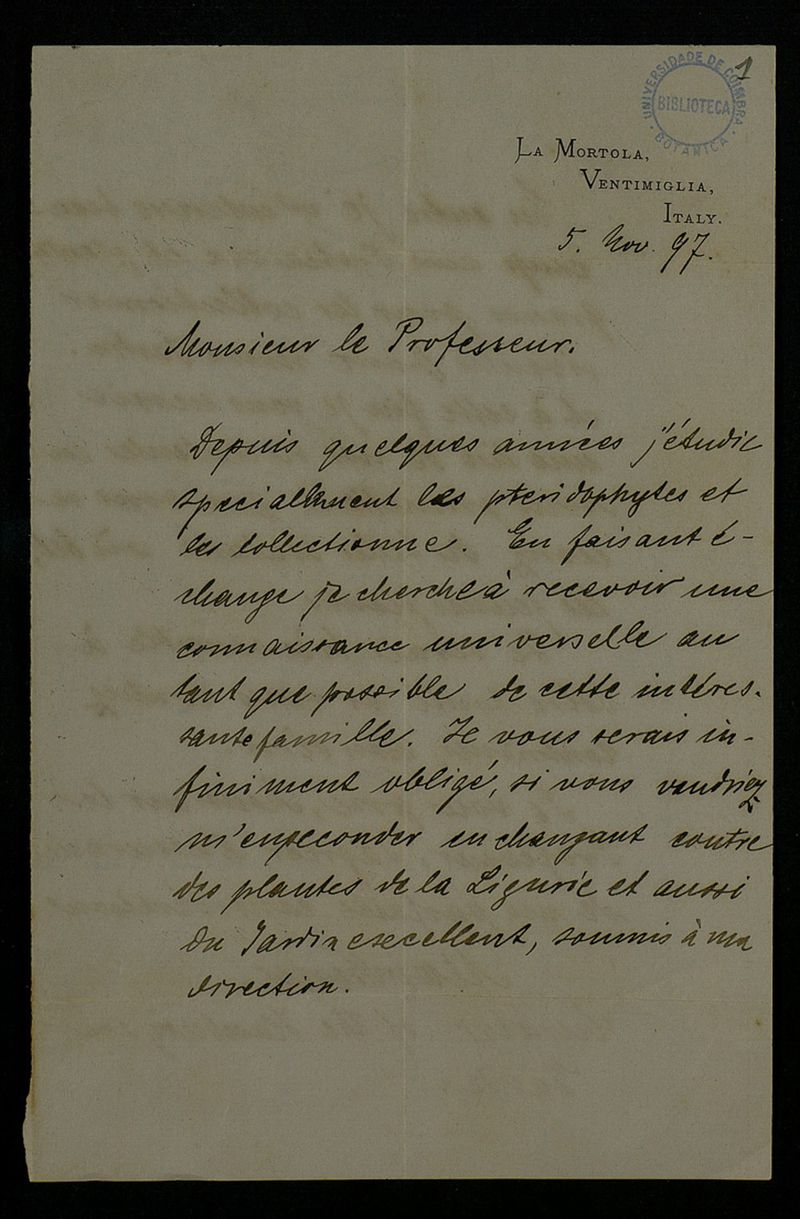 1
UNIVERSIDADE DE COIMBRA
BIBLIOTECA
BOTANICA
La Mortola,
Ventimiglia,
Italy.
5. Nov. 97.
Monsieur le Professeur.
Depuis quelques années j'étudie
speciallement les pteridophytes et
les collectionne. En faisant é-
change je cherche à recevoir une
connaissance universelle au
tant que possible de cette intéres-
sante famille. Je vous serais in-
finiment obligé, si vous voudriez
m'en seconder en changant contre
des plantes de la Ligurie et aussi
du Jardin excellent, soumis à ma
direction.